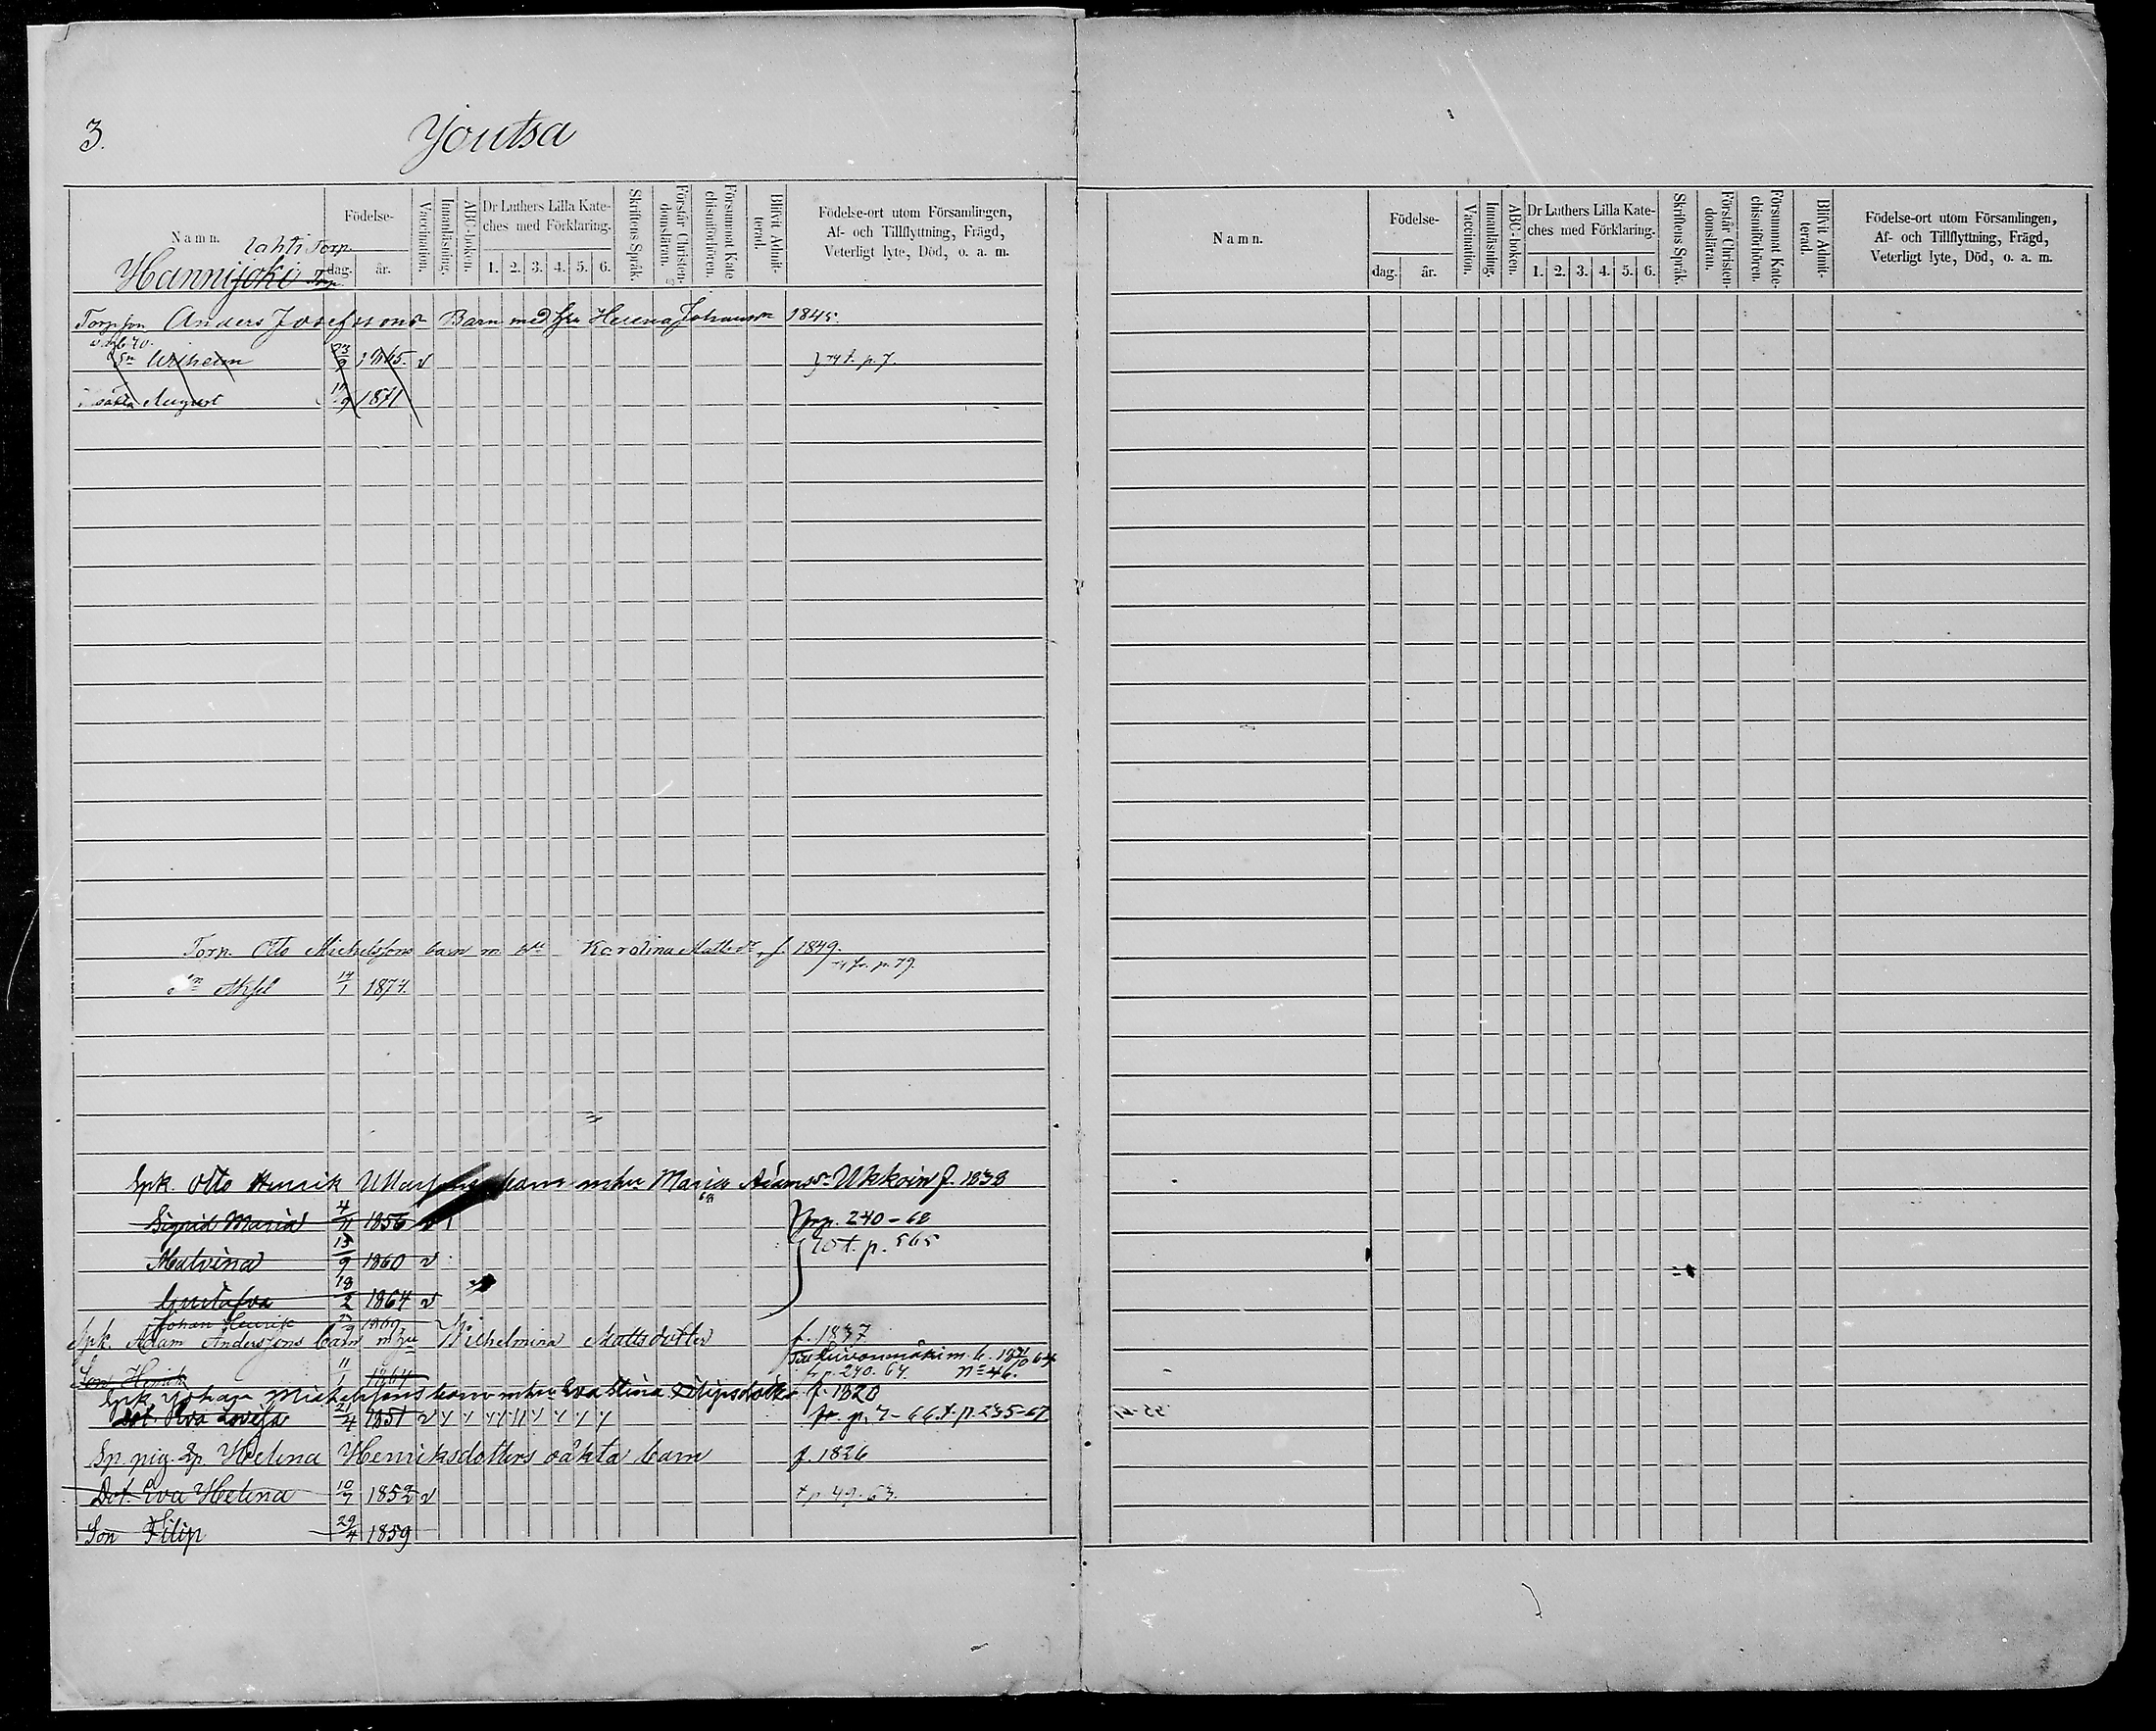 3.
Joutsa
Namn.
Födelse-
dag.
år.
Vaccination.
Innanläsning.
ABC-boken.
Dr Luthers Lilla Kate-
ches med Förklaring.
1. 2. 3. 4. 5. 6.
Skriftens Språk.
Förstår Christen-
domsläran.
Försummat Kate-
chismiförhören.
Blifvit Admit-
terad.
Födelse-ort utom Församlingen,
Af- och Tillflyttning, Frägd,
Veterligt lyte, Död, o. a. m.
Lahti Torp.
Hannijoki Torp.
Anders Josefssons Barn med hu Helena Johansdr 1845.
Sn Wilhelm 23/9 1865. v t. p. 7.
oäkta August 9 1871
Torp. Otto Michelssons barn m. hu Karolina Mattsdr f. 1849.
fr. p. 79.
Sn Axel 1 1874.
Spk. Otto Henrik barn m hu Maria Adamsdr Ukkoin f. 1838
Sigrid Maria 4 1856 v frp. 240-68
Malvina 15/9 1860 v t. p. 565
Gustafva 18/2 1864 v
Johan Henrik 1869
Spk. Adam Anderssons barn m hu Wilhelmina Mattsdotter f. 1837
Son Henrik 11/1 1864 fr p. 240. 64. no 46.
Spk Johan Michelssons barn m hu Eva Stina Filipsdotter f. 1820
Dot. Eva Lovisa 21/4 1851 v fr. p. 7-66. t. p. 235-67
Sp. pig. Helena Henriksdotters oäkta barn f. 1826
Dot. Eva Helena 10/7 1852 v t p 49. 63.
Son Filip 29/4 1859
Namn.
Födelse-
dag.
år.
Vaccination.
Innanläsning.
ABC-boken.
Dr Luthers Lilla Kate-
ches med Förklaring.
1. 2. 3. 4. 5. 6.
Skriftens Språk.
Förstår Christen-
domsläran.
Försummat Kate-
chismiförhören.
Blifvit Admit-
terad.
Födelse-ort utom Församlingen,
Af- och Tillflyttning, Frägd,
Veterligt lyte, Död, o. a. m.